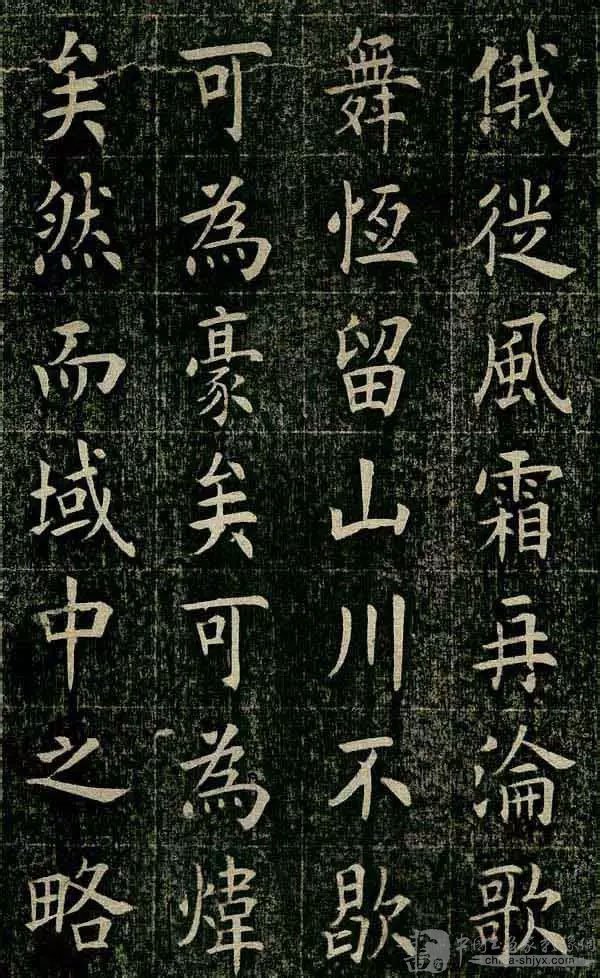 俄従風霜再淪歌
舞恆留山川不歇
可為豪矣可為煒
矣然而域中之略
china-shjyx.com